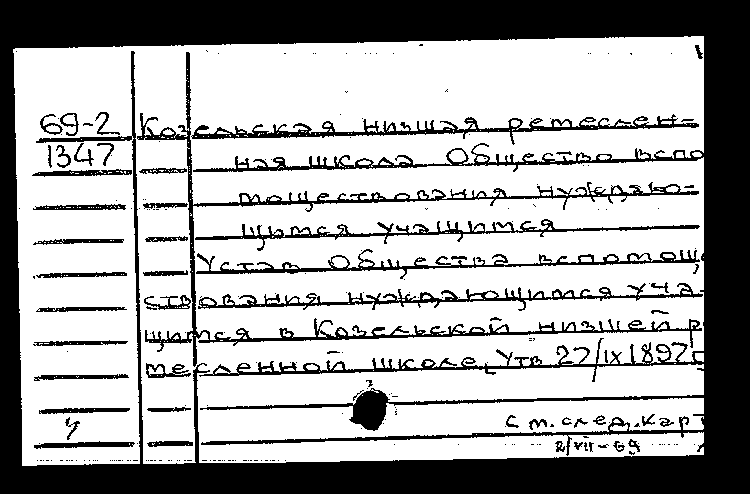 69-2 Козельская низшая ремеслен=
1347 ная школа Общество вспо
моществования нуждаю=
щимся учащимся
Устав Общества вспомощ
ствования нуждающимся уча-
щимся в Козельской низшей р
месленной школе, Утв 27/IX 1897
У см.след.карт
2/VII-69